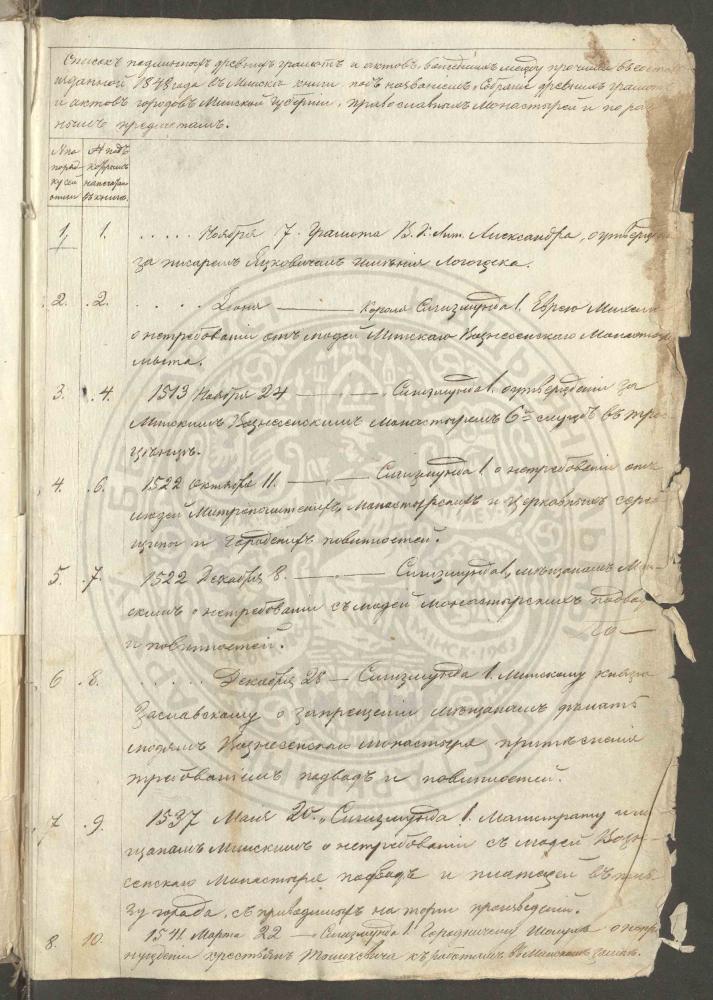 Списокъ подлинныхъ древнихъ грамотъ и актовъ, вошедшихъ между прочими въ составъ
изданной 1848 года въ Минскѣ книги подъ названіемъ: Собраніе древнихъ грамотъ
и актовъ городовъ Минской губерніи, православныхъ монастырей и по раз
нымъ предметамъ.
№ по
поряд
ку сей
описи
№ подъ
которымъ
напечатан
въ книгѣ.
1. 1. . . . . . Ноября 7. Грамота В. К. Лит. Александра, о утвержде
за писаремъ Яцковичемъ имѣнія Логойска.
2. .2. . . . . . Іюня — Короля Сигизмунда 1. Еврею
о нетребованіи отъ людей Минскаго Вознесенскаго Монастыря
мыта.
3. .4. 1513 Ноября 24 — . — . Сигизмунда 1. о утвержденіи за
Минскимъ Вознесенскимъ монастыремъ 6ти службъ въ Тро
4. .6. 1522 Октября 11. — . — Сигизмунда 1. о нетребованіи отъ
людей Митрополитскихъ, Монастырскихъ и Церковныхъ
и Городскихъ повинностей.
5. .7. 1522 Декабря 8. — . — Сигизмунда 1, мѣщанамъ Мин
скимъ о нетребованіи съ людей монастырскихъ подвод
и повинностей.
6 .8. . . . . . Декабря 28 — Сигизмунда 1. Минскому князю
Заславскому о запрещеніи мѣщанамъ дѣлать
людямъ Вознесенскаго монастыря притѣсненія
требованіемъ подводъ и повинностей.
7 .9. 1537 Мая 20. „ Сигизмунда 1. Магистрату и мѣ
щанамъ Минскимъ о нетребованіи съ людей Возне
сенскаго Монастыря подводъ и платежей въ поль
зу города, съ приводимыхъ на торги произведеній.
8. 10. 1541 Марта 22 — Сигизмунда 1. Городничему о непри
нужденіи крестьянъ къ работамъ въ Минскомъ замкѣ.
МІНСК · 1963